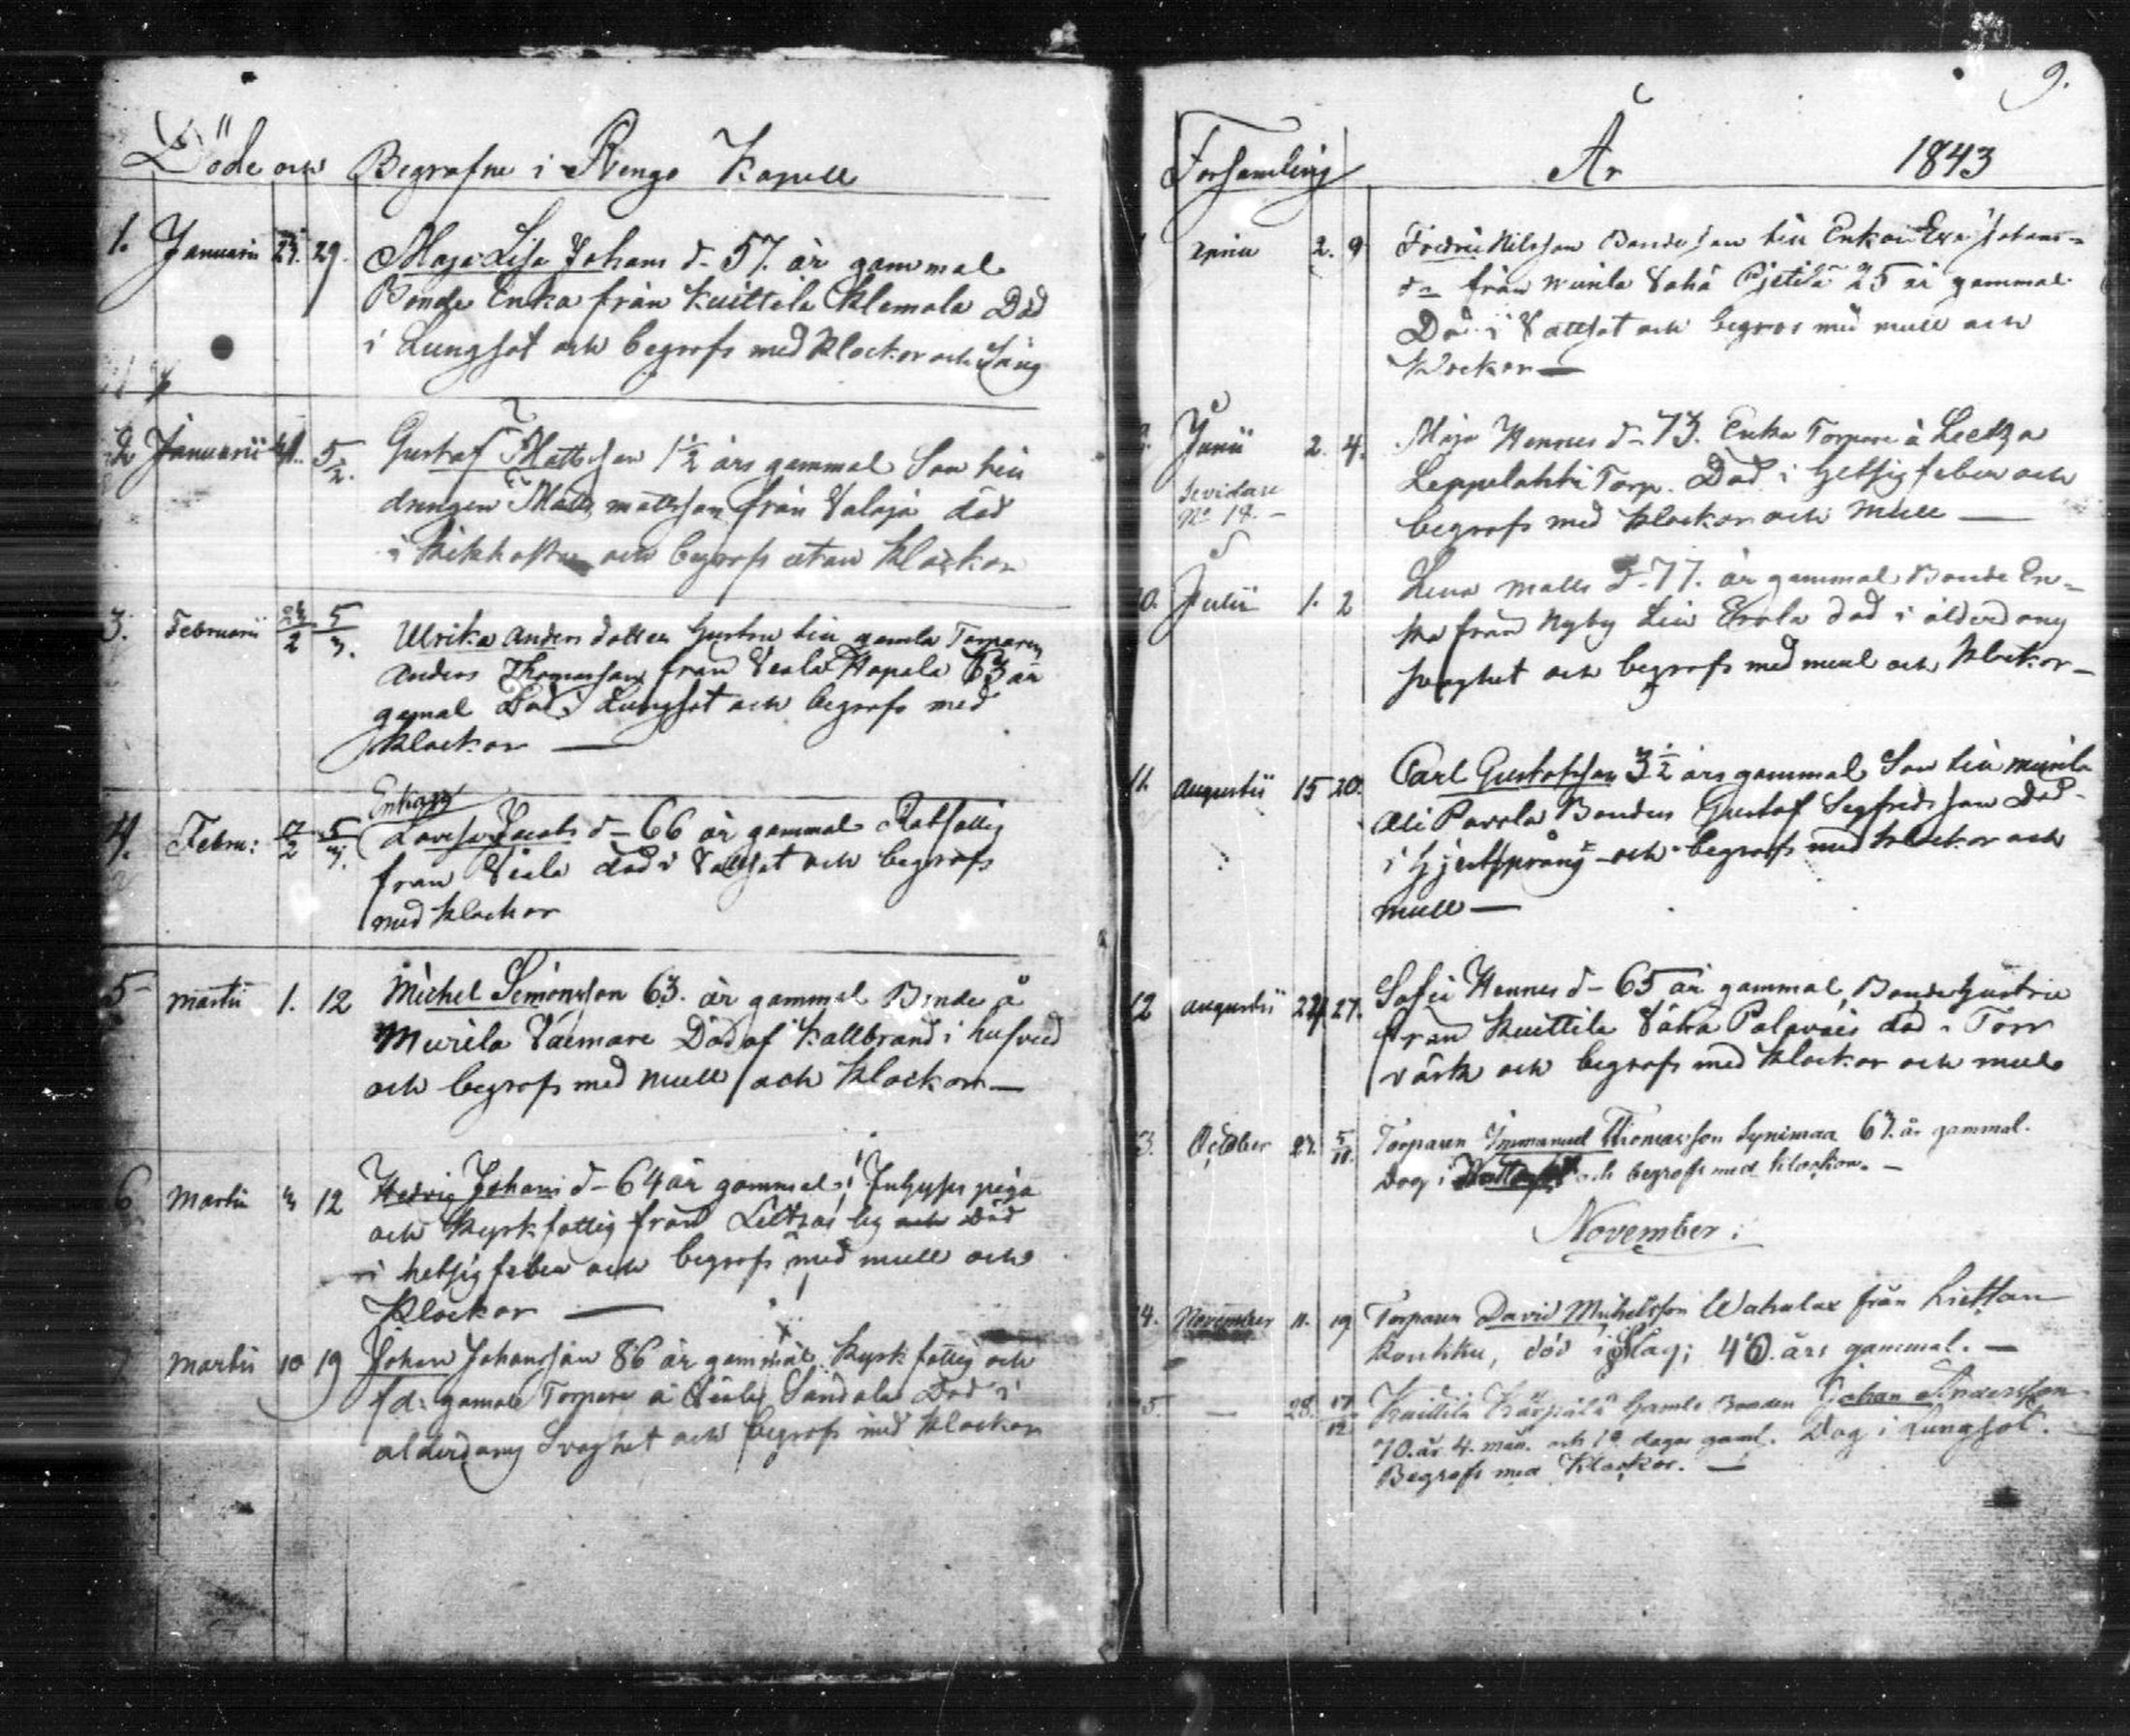 Döde och Begrafne i Rengo Kapell
1. Januarii 21. 29. Maja Lisa Johans d- 57. år gammal
Bonde Enka från Kuittila Klemola Död
i Lungsot och begrofs med klockor och Sång
2 Januarii 5/2. Gustaf Mattsson 1 1/2 års gammal Son till
drengen Matts mattsson från Valaja död
i Kikhosta och begrofs utan Klockor
3. Februarii 24/2 5/3. Ulrika Anders dotter hustru till gamla Torparen
Anders Thomasson från Veala Hapala 63 år
gamal Död i Lungsot och begrofs med
klockor —
Enkan
4. Febru: 5/3. Lovisa Jacobs d- 66 år gammal Rotfattig
från Viala död i Vattsot och begrofs
med klockor
5 martii 1. 12 Michel Simonsson 63. år gammal Bonde å
Murila Död af Kallbrand i hufvud
och begrofs med mull och Klockor —
6 Martii 12 Hedvig Johans d- 64 år gammal Inhyses piga
och Kyrkfattig från och död
i hetsig feber och begrofs med mull och
Klockor —
7 Martii 10 19 Johan Johansson 86 år gammal Kyrkfattig och
fd: gamal Torpare å Viala Sandala Död i
alderdoms Svaghet och begrofs med klockor
9.
Forsamling År 1843
April 2. 9 Fredric Nilsson Bonde son till Enkan Eva Johans=
d= från Murila Vähä Pjetilä 25 år gammal
Död i Vattsot och begros med mull och
Klockor —
Junii 2. 4. Maja Hennes d- 73. Enka Torpare å
Leppelahti Torp. Död i hetsig feber och
begrofs med klockor och mull —
No 14. -
10. Julii 1. 2 Lena Matts d- 77. år gammal Bonde En=
ka från Nyby Erola död i ålderdoms
svaghet och begrofs med mull och klockor —
11. Augustii 15 20. Carl Gustafsson 3 1/2 års gammal Son till Murila
Ali Pavola Bonden Gustaf Segfredsson Död
i och begrofs med klockor och
mull —
12 Augustii 27. Sofia Hennes d- 65 år gammal Bonde hustru
från Kuittila Vähä död i Torr
värk och begrofs med klockor och mull
3. October 27. 5/11. Torparen Immanuel Thomasson Synimaa 67. år gammal.
Dog i och begrofs med klockor. —
November:
14. November 11. 19 Torparen David Michelsson från
Kontkku, död i Slag; 46. års gammal. —
15. — 28. 17/12. Kuittila Kärpälä Gamla Bonden Johan Andersson
70. år. 4. mån. och 12 dagar gaml. Dog i Lungsot.
Begrofs med Klockor. —